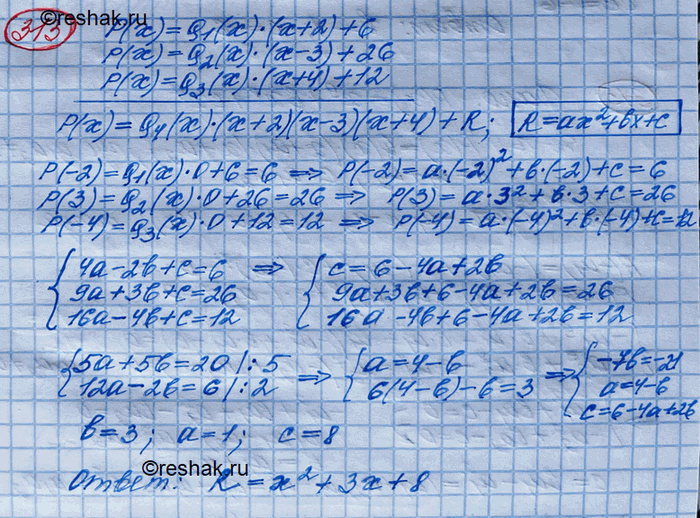 ©reshak.ru
313
P(x)=Q₁(x)·(x+2)+6
P(x)=Q₂(x)·(x-3)+26
P(x)=Q₃(x)·(x+4)+12
P(x)=Q₄(x)·(x+2)(x-3)(x+4)+R; R=ax²+bx+c
P(-2)=Q₁(x)·0+6=6 ⟹ P(-2)=a·(-2)²+b·(-2)+c=6
P(3)=Q₂(x)·0+26=26 ⟹ P(3)=a·3²+b·3+c=26
P(-4)=Q₃(x)·0+12=12 ⟹ P(-4)=a·(-4)²+b·(-4)+c=12
{4a-2b+c=6 ⟹ {c=6-4a+2b
9a+3b+c=26 9a+3b+6-4a+2b=26
16a-4b+c=12 16a-4b+6-4a+2b=12
{5a+5b=20|:5 ⟹ {a=4-b ⟹ {-7b=-21
12a-2b=6|:2 6(4-b)-b=3 a=4-b
c=6-4a+2b
b=3; a=1; c=8
©reshak.ru
Ответ: R=x²+3x+8